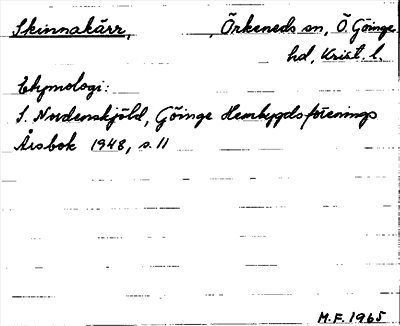 Skinnakärr, , Örkeneds sn, Ö. Göinge
hd, Krist. l.
Etymologi:
S. Nordenskjöld, Göinge Hembygdsförenings
Årsbok 1948, s. 11
M.F. 1965